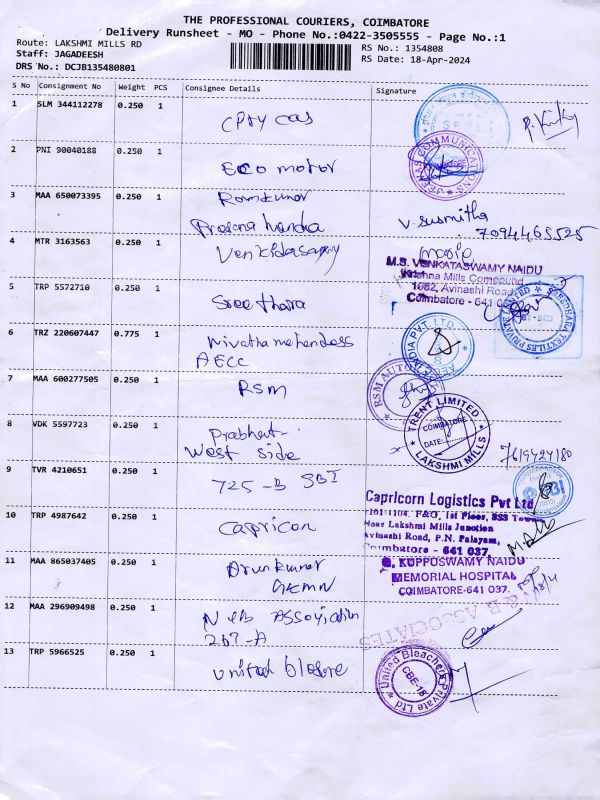 THE PROFESSIONAL COURIERS, COIMBATORE
Delivery Runsheet - MO - Phone No.:0422-3505555 - Page No.:1
Route: LAKSHMI MILLS RD
RS No.: 1354808
Staff: JAGADEESH
RS Date: 18-Apr-2024
DRS No.: DCJB135480801
S No Consignment No Weight PCS Consignee Details Signature
1 SLM 344112278 0.250 1
cpry cas
2 PNI 90040188 0.250 1
JEEMAS COMMUNICATIONS
Eco motor
3 MAA 650073395 0.250 1 Ramkumar
Prasana handra V. Susmitha
7094465525
4 MTR 3163563 0.250 1 Venkidasamy
M.S. VENKATASWAMY NAIDU
Krishna Mills Compound
1082, Avinashi Road
Coimbatore - 641 037
5 TRP 5572710 0.250 1
Sree thara
6 TRZ 220607447 0.775 1 Nivatha mohandass
AECC
AECC INDIA PVT. LTD.
7 MAA 600277505 0.250 1 RSM
RSM AUTO
8 VDK 5597723 0.250 1 Prabhat-
West side
TRENT LIMITED
COIMBATORE
DATE:
LAKSHMI MILLS
7619424180
9 TVR 4210651 0.250 1 725-B SBI
SBI
10 TRP 4987642 0.250 1 Capricon
Capricorn Logistics Pvt Ltd
1101-1104, F&O, 1st Floor, SS3 Tower
Near Lakshmi Mills Junction
Avinashi Road, P.N. Palayam,
Coimbatore - 641 037.
11 MAA 865037405 0.250 1 Arunkumar
GKMN
G. KUPPUSWAMY NAIDU
MEMORIAL HOSPITAL
COIMBATORE-641 037.
12 MAA 296909498 0.250 1 N &B Association
267-A
N & B ASSOCIATES
13 TRP 5966525 0.250 1 united bleare
United Bleachers Private Ltd
CBE-18